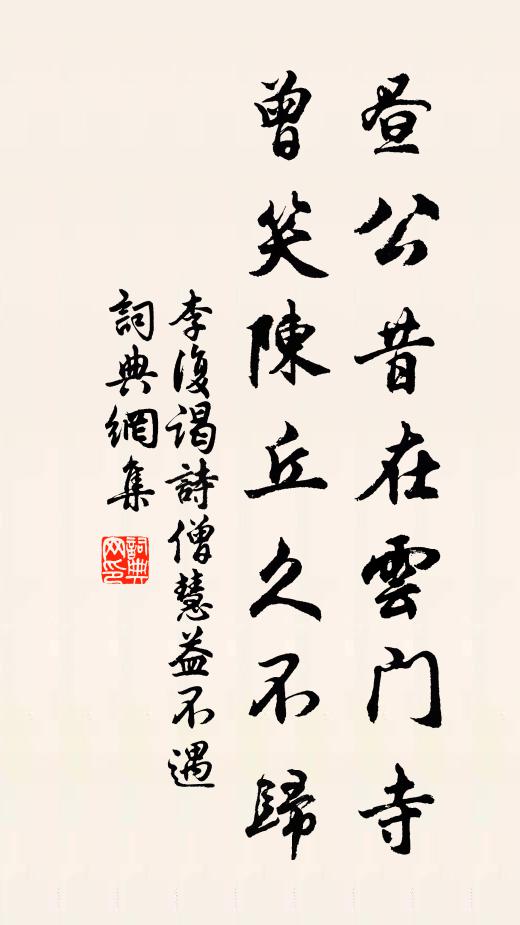 昼公昔在雲門寺
曾笑陳丘久不歸
李復謁詩僧慧益不遇
詞典網集
詞典
网印